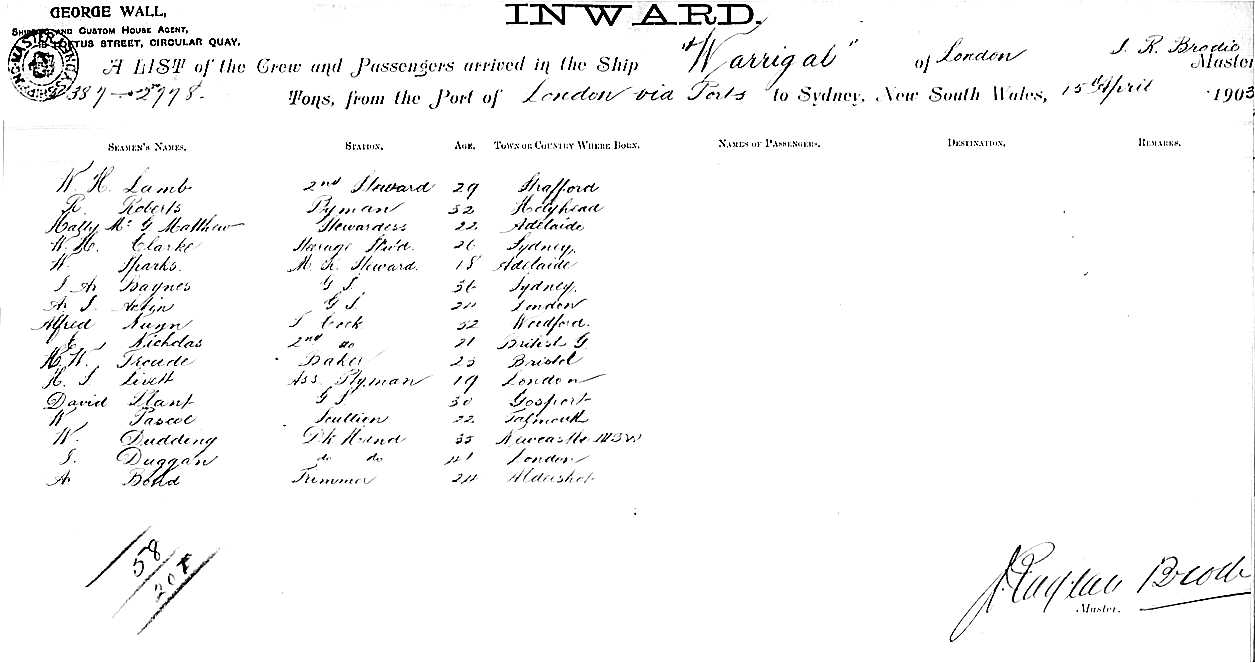 GEORGE WALL,
INWARD.
AND CUSTOM HOUSE AGENT,
STREET, CIRCULAR QUAY.
A LIST of the Crew and Passengers arrived in the Ship "Warrigal" of London J. R. Brodie Master
2998. Tons, from the Port of London via Ports to Sydney, New South Wales, 15th April 1903
SEAMEN'S NAMES. STATION. AGE. TOWN OR COUNTRY WHERE BORN. NAMES OF PASSENGERS. DESTINATION. REMARKS.
W. H. Lamb 2nd Steward 29 Strafford
R. Roberts Pyman 32 Holyhead
Matthew Stewardess 22 Adelaide
W. H. Clarke Sydney.
W. Sparks. M. R. Steward. 18 Adelaide
J A Baynes G S. 36 Sydney.
A. J. G S 24 London
Alfred Cook 32 Woodford.
Nicholas 2nd do 21 British G
H. W. Froude Baker 23 Bristol
H. J Livett Ass. Ptyman 19 London
David Stant G S 30 Gosport
W Pascoe Scullion 22 Falmouth
W. Dudding Dk Hand 35 Newcastle NSW
J. Duggan do do 41 London
A Bond Trimmer 24 Aldershot
58
207
Master.